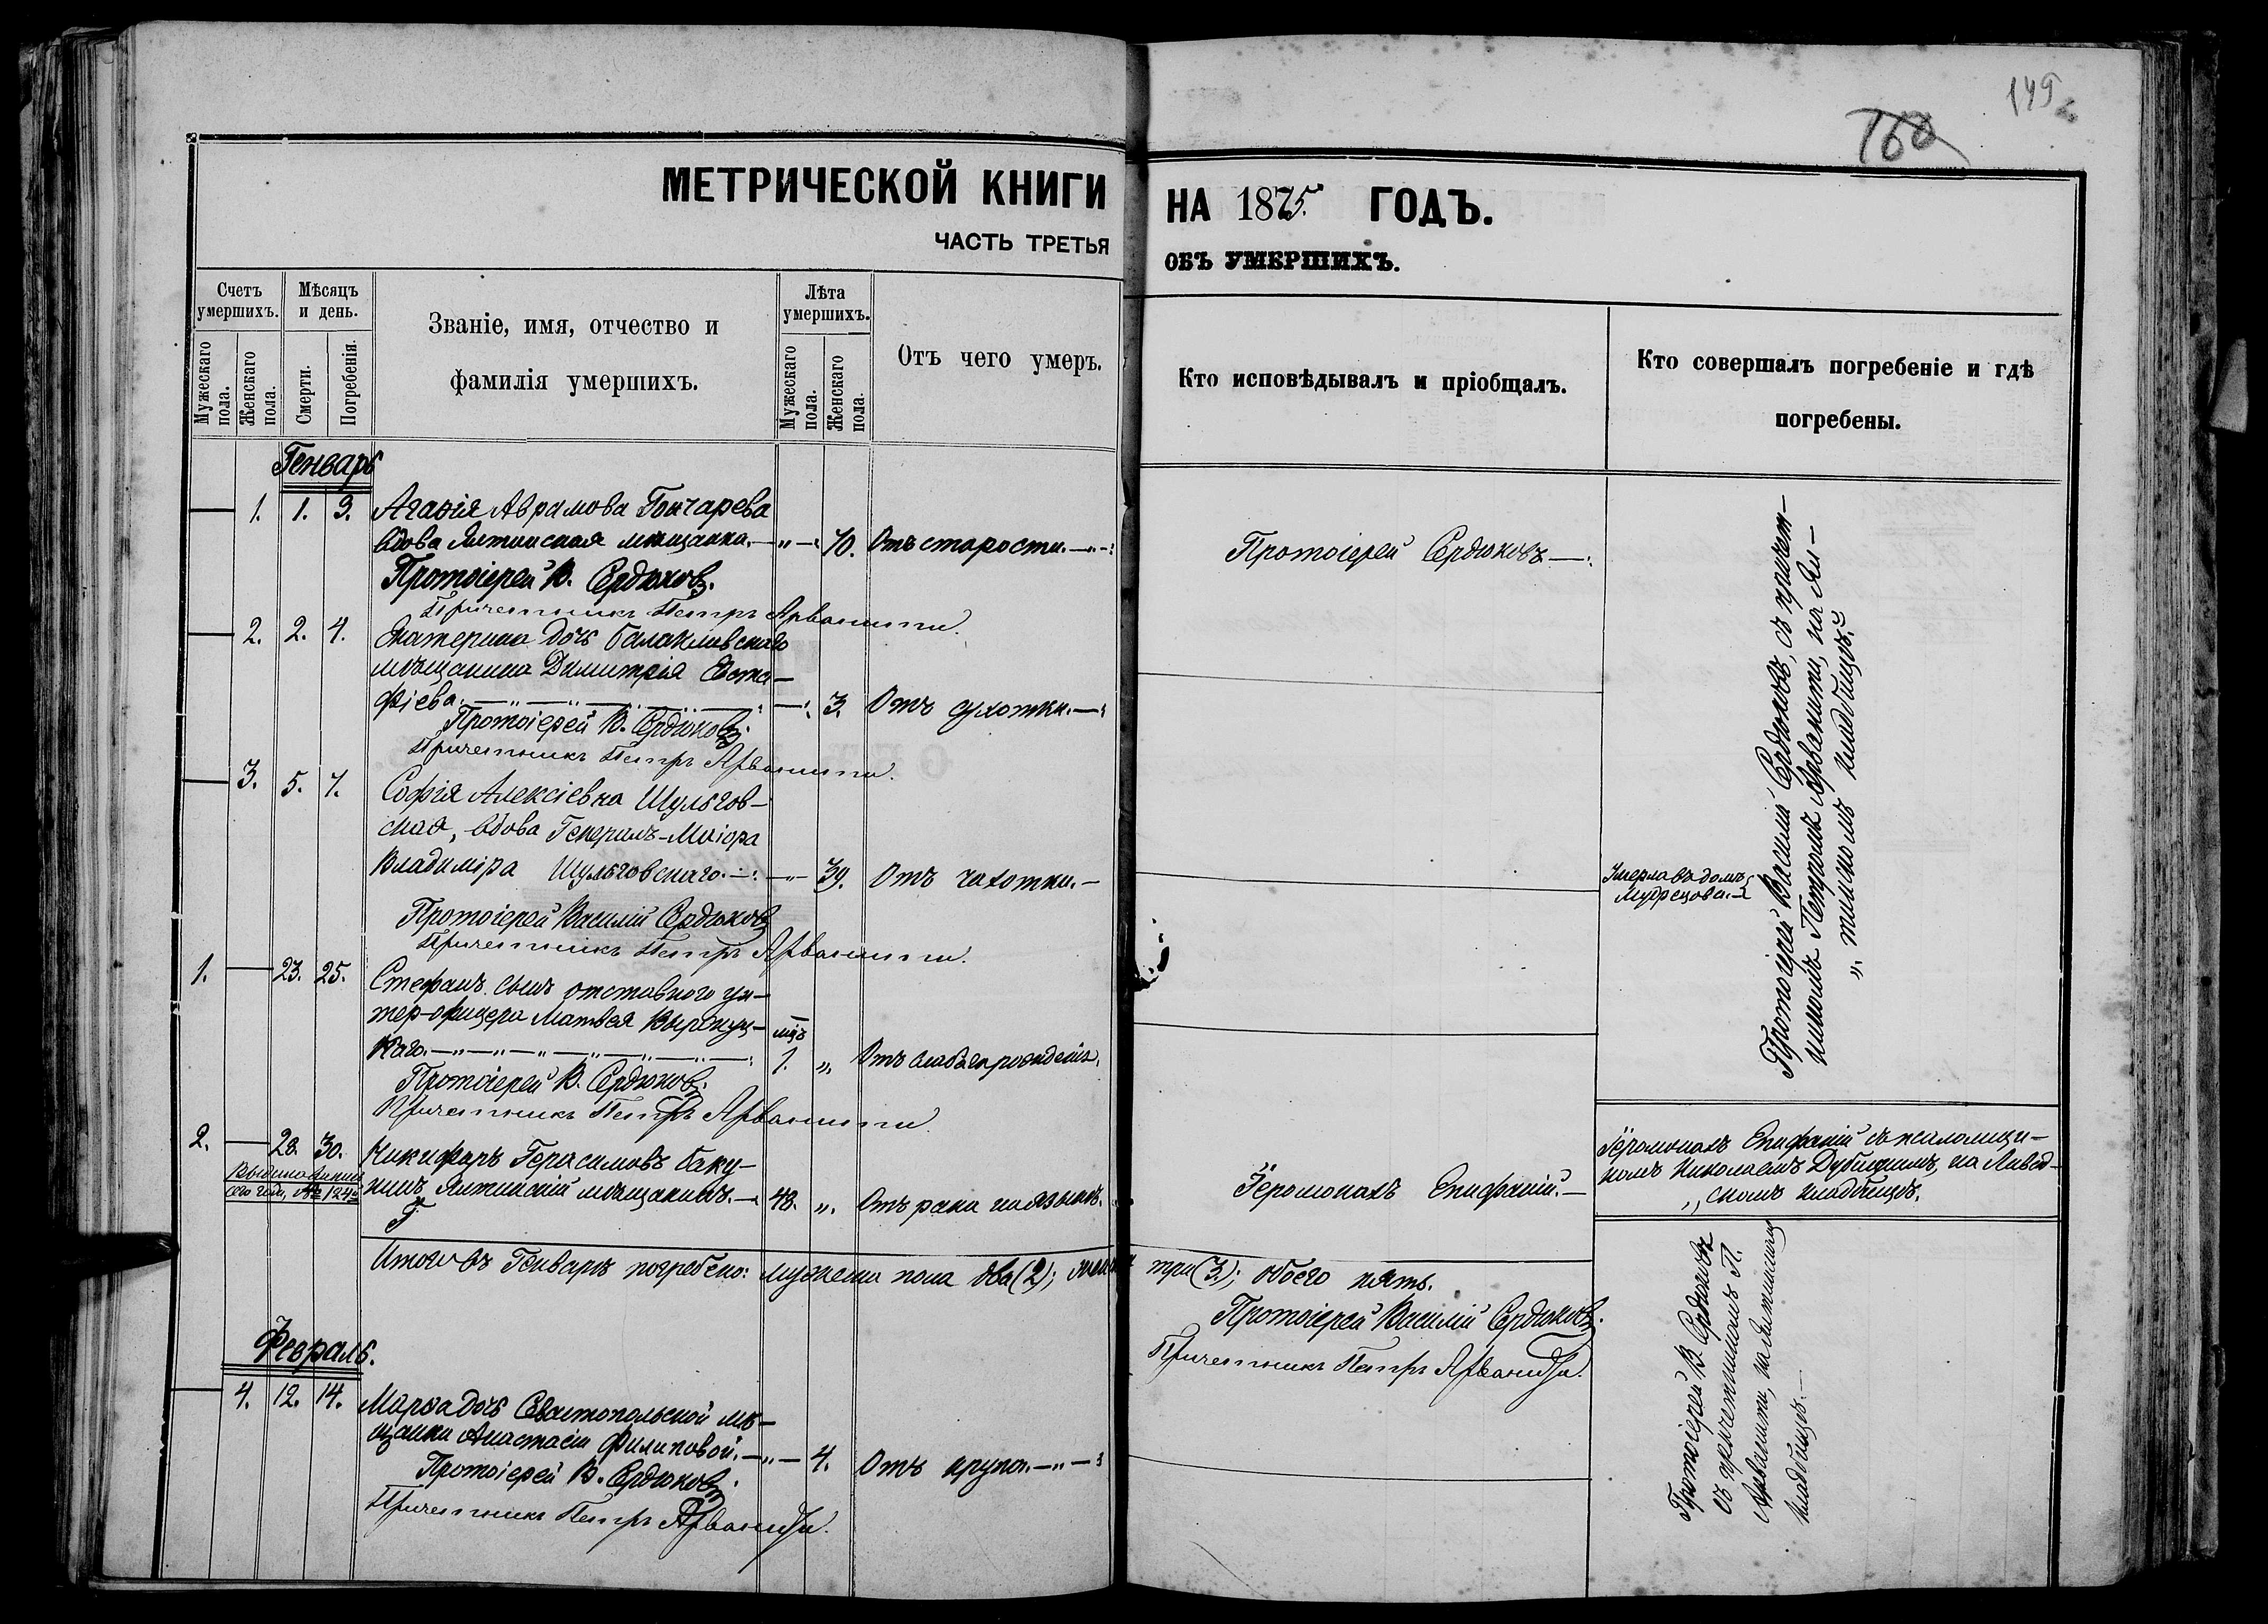 149
160
МЕТРИЧЕСКОЙ КНИГИ НА 1875. ГОДЪ.
ЧАСТЬ ТРЕТЬЯ ОБЪ УМЕРШИХЪ.
Счетъ умершихъ.
Мужескаго пола.
Женскаго пола.
Мѣсяцъ и день.
Смерти.
Погребенія.
Званіе, имя, отчество и
фамилія умершихъ.
Лѣта умершихъ.
Мужескаго пола.
Женскаго пола.
Отъ чего умеръ.
Кто исповѣдывалъ и пріобщалъ.
Кто совершалъ погребеніе и гдѣ
погребены.
Генварь
— 1. 1. 3. Агаѳія Аврамова Гончарева
вдова Ялтинская мѣщанка. — „ — 70. Отъ старости. Протоіерей Сердюковъ
Протоіерей В. Сердюковъ.
Причетникъ Петръ Арванити.
— 2. 2. 4. Екатерина дочь балаклавскаго
мѣщанина Димитрія Евста-
фіева. — 3. Отъ сухотки.
Протоіерей В. Сердюковъ.
Причетникъ Петръ Арванити.
— 3. 5. 7. Софія Алексіевна Шульгов-
ская, вдова Генералъ-Маіора
Владиміра Шульговскаго. — „ 39. Отъ чахотки. —
Умерла въ домѣ
Мудрецова.
Протоіерей Василій Сердюковъ
Причетникъ Петръ Арванити.
1. — 23. 25. Стефанъ сынъ отставного ун-
тер-офицера Матвея
каго. мцъ 1. „
Протоіерей В. Сердюковъ.
Причетникъ Петръ Арванити.
Протоіерей Василій Сердюковъ, съ причет-
никомъ Петромъ Арванити, на Ял-
„ тинскомъ кладбищѣ.
2. — 28. 30. Никифоръ Герасимовъ баку-
нинъ Ялтинскій мѣщанинъ. — 48. „ Отъ рака на языкѣ. Іеромонахъ Епифаній. —
сего года, № 124
Іеромонахъ Епифаній съ псаломщи-
комъ Николаемъ на Ливад-
„ скомъ кладбищѣ.
Итого въ Генварѣ погребено: мужеска пола два (2); три (3.); обоего пять.
Протоіерей Василій Сердюковъ.
Причетникъ Петръ Арваниди.
Февраль.
— 4. 12. 14. Марѳа дочь Севастопольской мѣ-
щанки Анастасіи Филиповой. — „ — 4. Отъ крупа. — „ —
Протоіерей В. Сердюковъ.
Причетникъ Петръ Арваниди.
Протоіерей В. Сердюковъ
съ причетникомъ П.
Арванити, на Ялтинскомъ
кладбищѣ. —